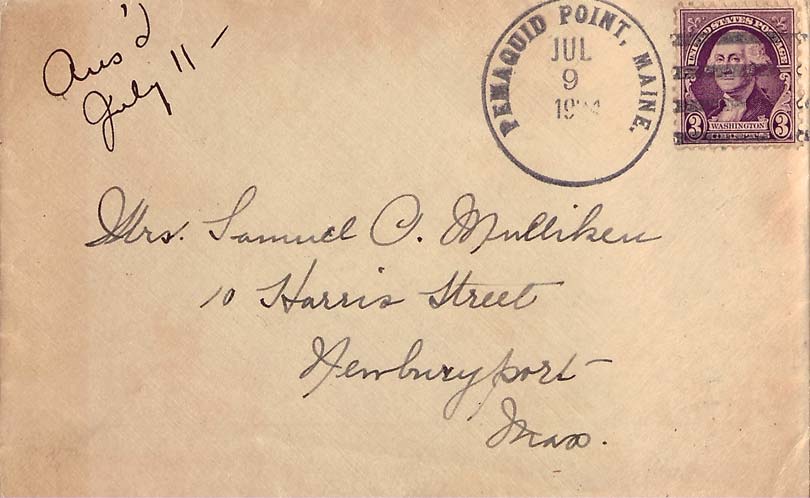 Ans'd
July 11 –
PEMAQUID POINT, MAINE.
JUL
9
UNITED STATES POSTAGE
3 WASHINGTON 3
Mrs. Samuel C. Mulliken
10 Harris Street
Newburyport
Mass.